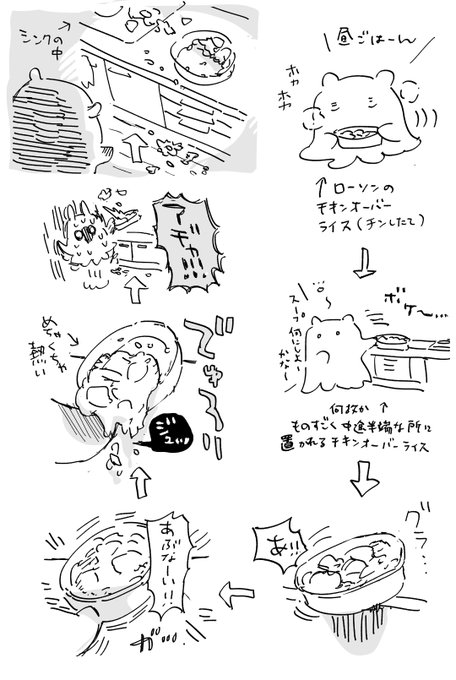 \昼ごはーん/
ホカ
ホカ
↑ローソンの
チキンオーバー
ライス(チンしたて)
スープ何にしよっ
かな〜
ボケ〜…
何故か↑
ものすごく中途半端な所に
置かれるチキンオーバーライス
グラ…
あ!!
あぶなーい!!!
ガッ…
でゅるん
ジュッ
めちゃくちゃ
熱い
アヂャ!!!
シンクの
中